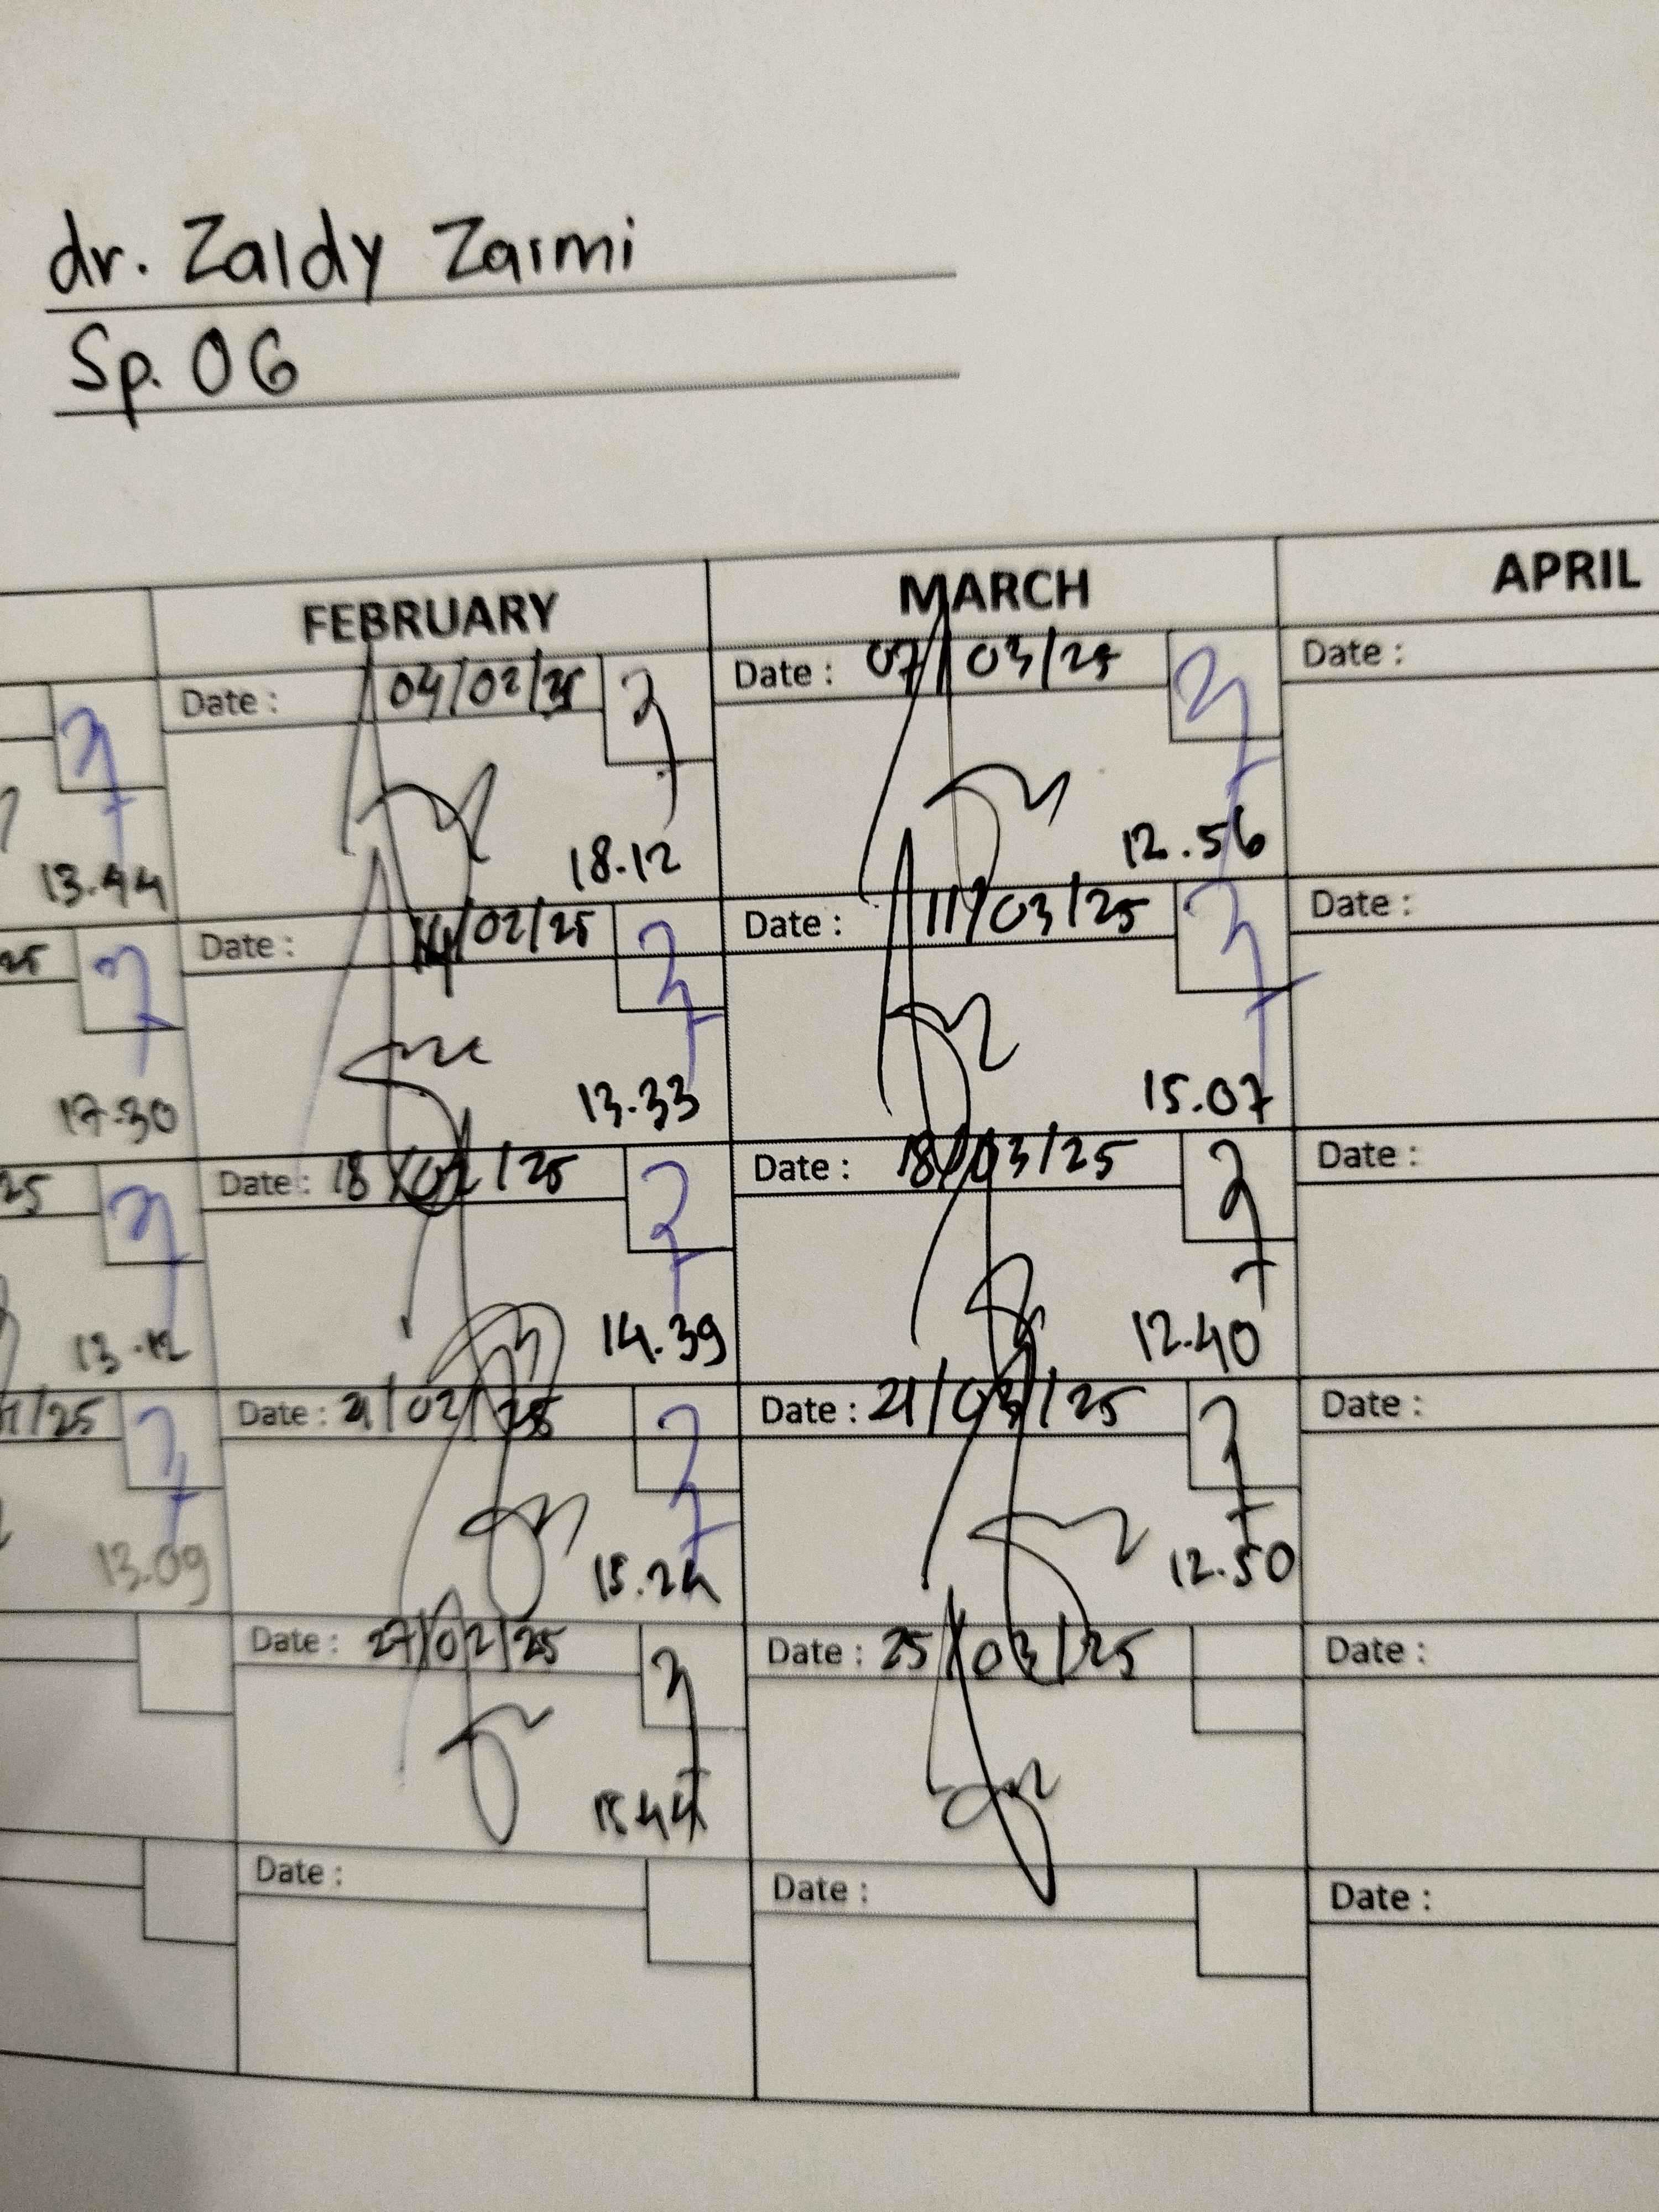 dr. Zaldy Zaimi
Sp. OG
FEBRUARY MARCH APRIL
Date : 04/02/25 Date : 07/03/25 Date :
13.44 18.12 12.56
25 Date : 14/02/25 Date : 11/03/25 Date :
17.30 13.33 15.07
25 Date : 18/02/25 Date : 18/03/25 Date :
13.12 14.39 12.40
/25 Date : 21/02/25 Date : 21/03/25 Date :
13.09 15.24 12.50
Date : 27/02/25 Date : 25/03/25 Date :
15.44
Date : Date : Date :